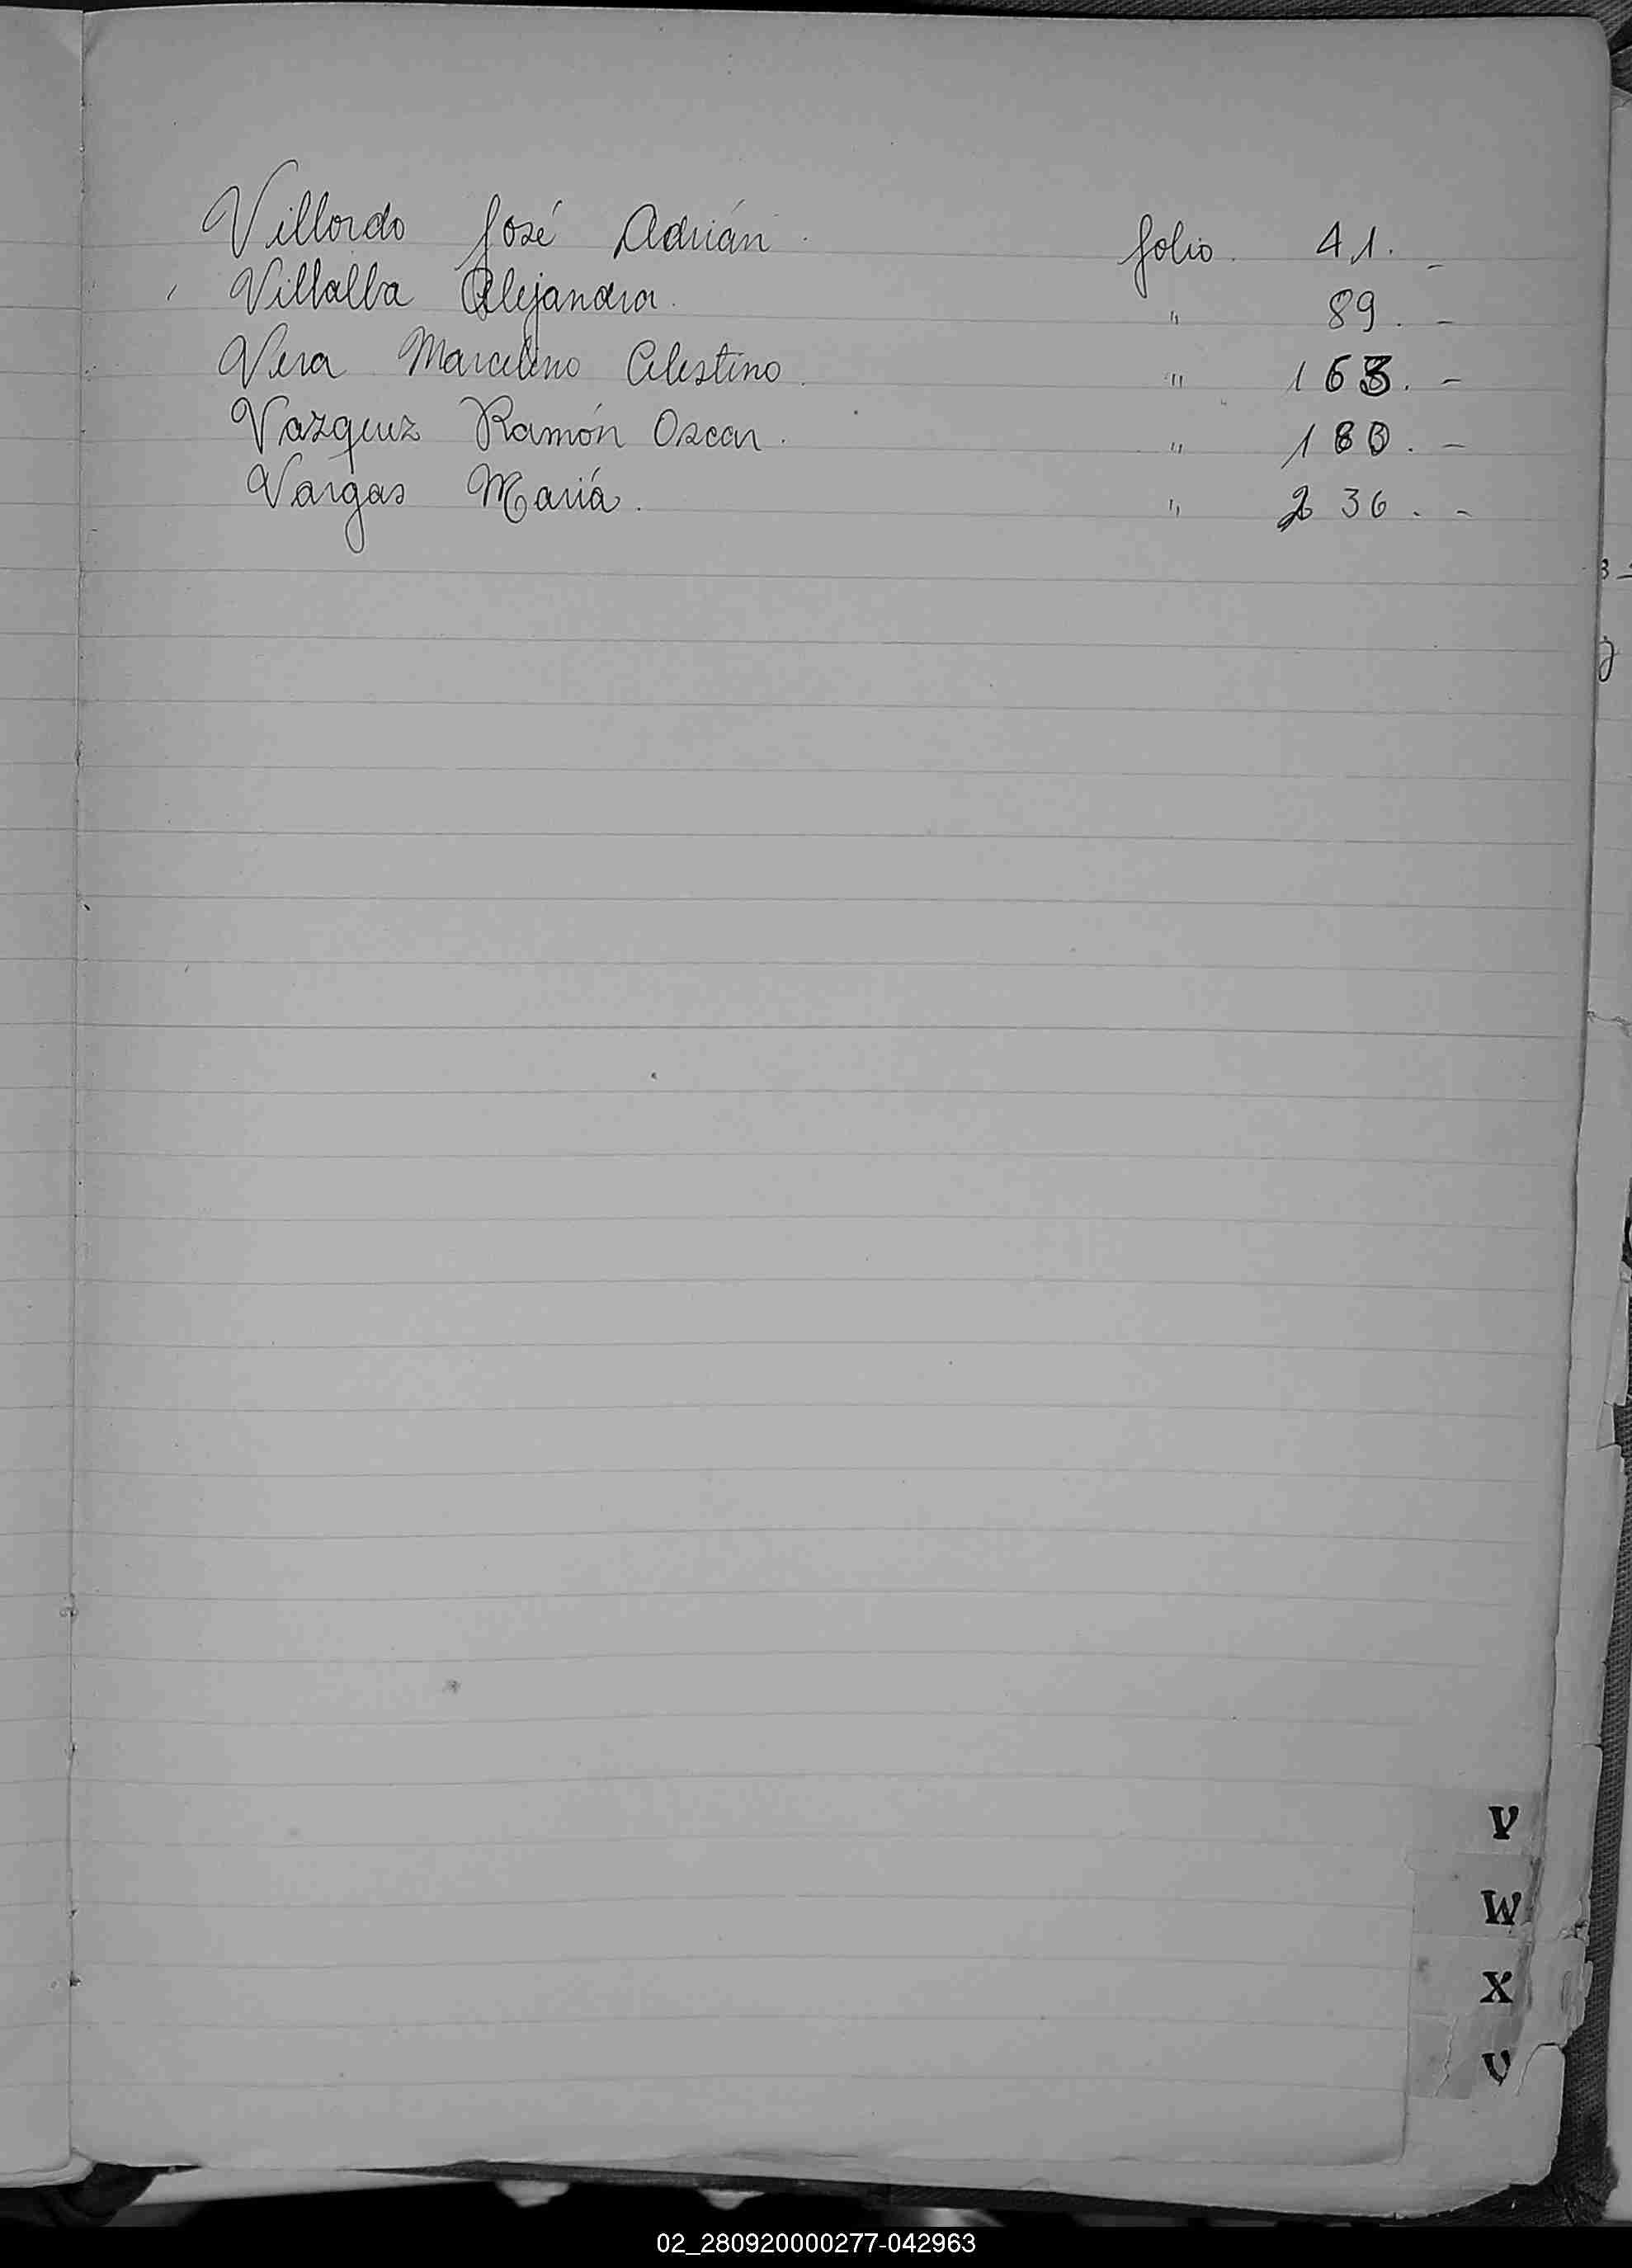 Villordo José Adrián. folio. 41. -
Villalba Alejandra. " 89. -
Vera Marcelino Celestino. " 163. -
Vazquez Ramón Oscar. " 180. -
Vargas María. " 236. -
V
W
X
02_280920000277-042963